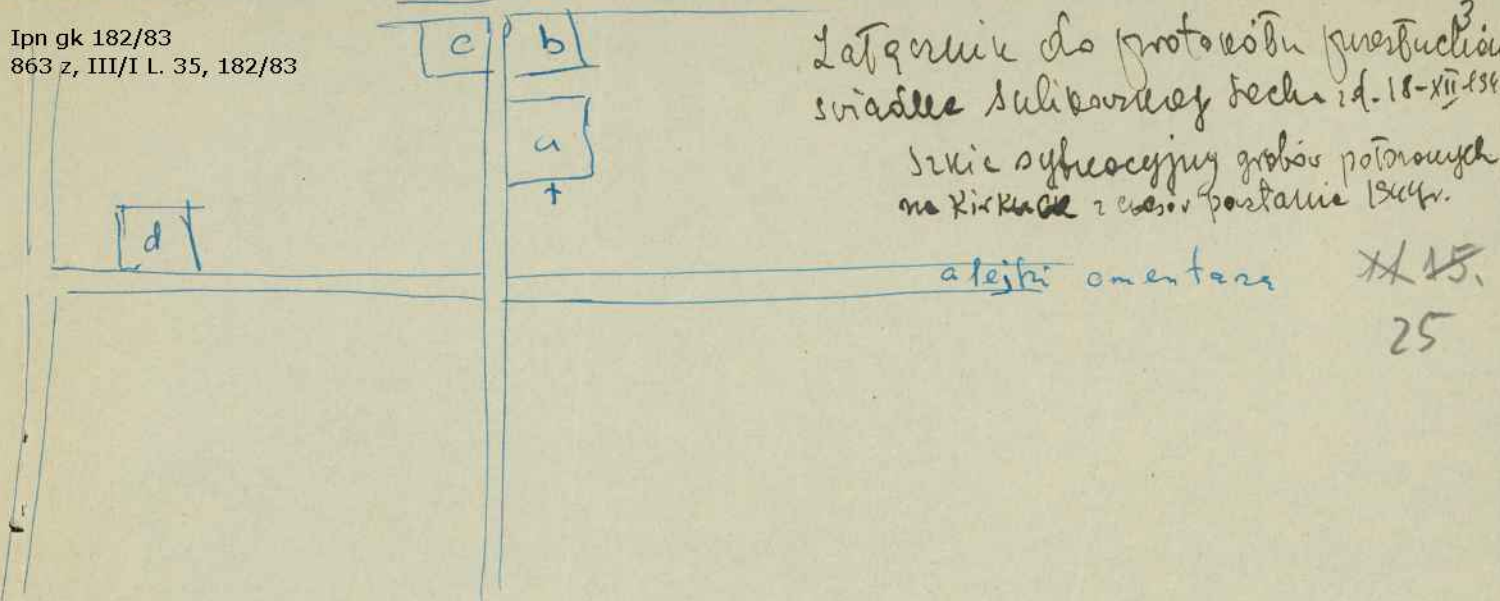 Ipn gk 182/83
863 z, III/I L. 35, 182/83
c
b
a
d
3
Załącznik do protokółu przesłuchan
świadka z d. 18-XII-194
Szkic sytuacyjny grobów położonych
na Kirkucie z czasów powstania 1944r.
alejki cmentarza
15.
25